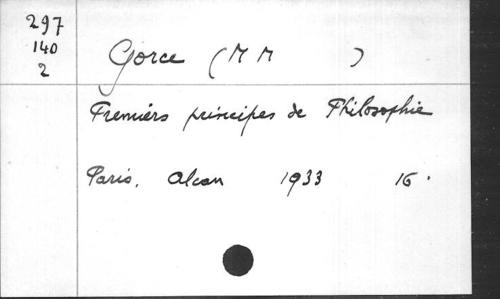 297
140
2
Gorce (M M )
Premiers principes de Philosophie
Paris, Alcan 1933 16°